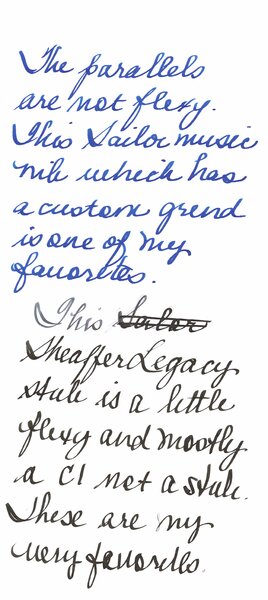 The parallels
are not flexy.
This Sailor music
nib which has
a custom grind
is one of my
favorites.
This Sailor
Sheaffer Legacy
stub is a little
flexy and mostly
a CI not a stub.
These are my
very favorites.